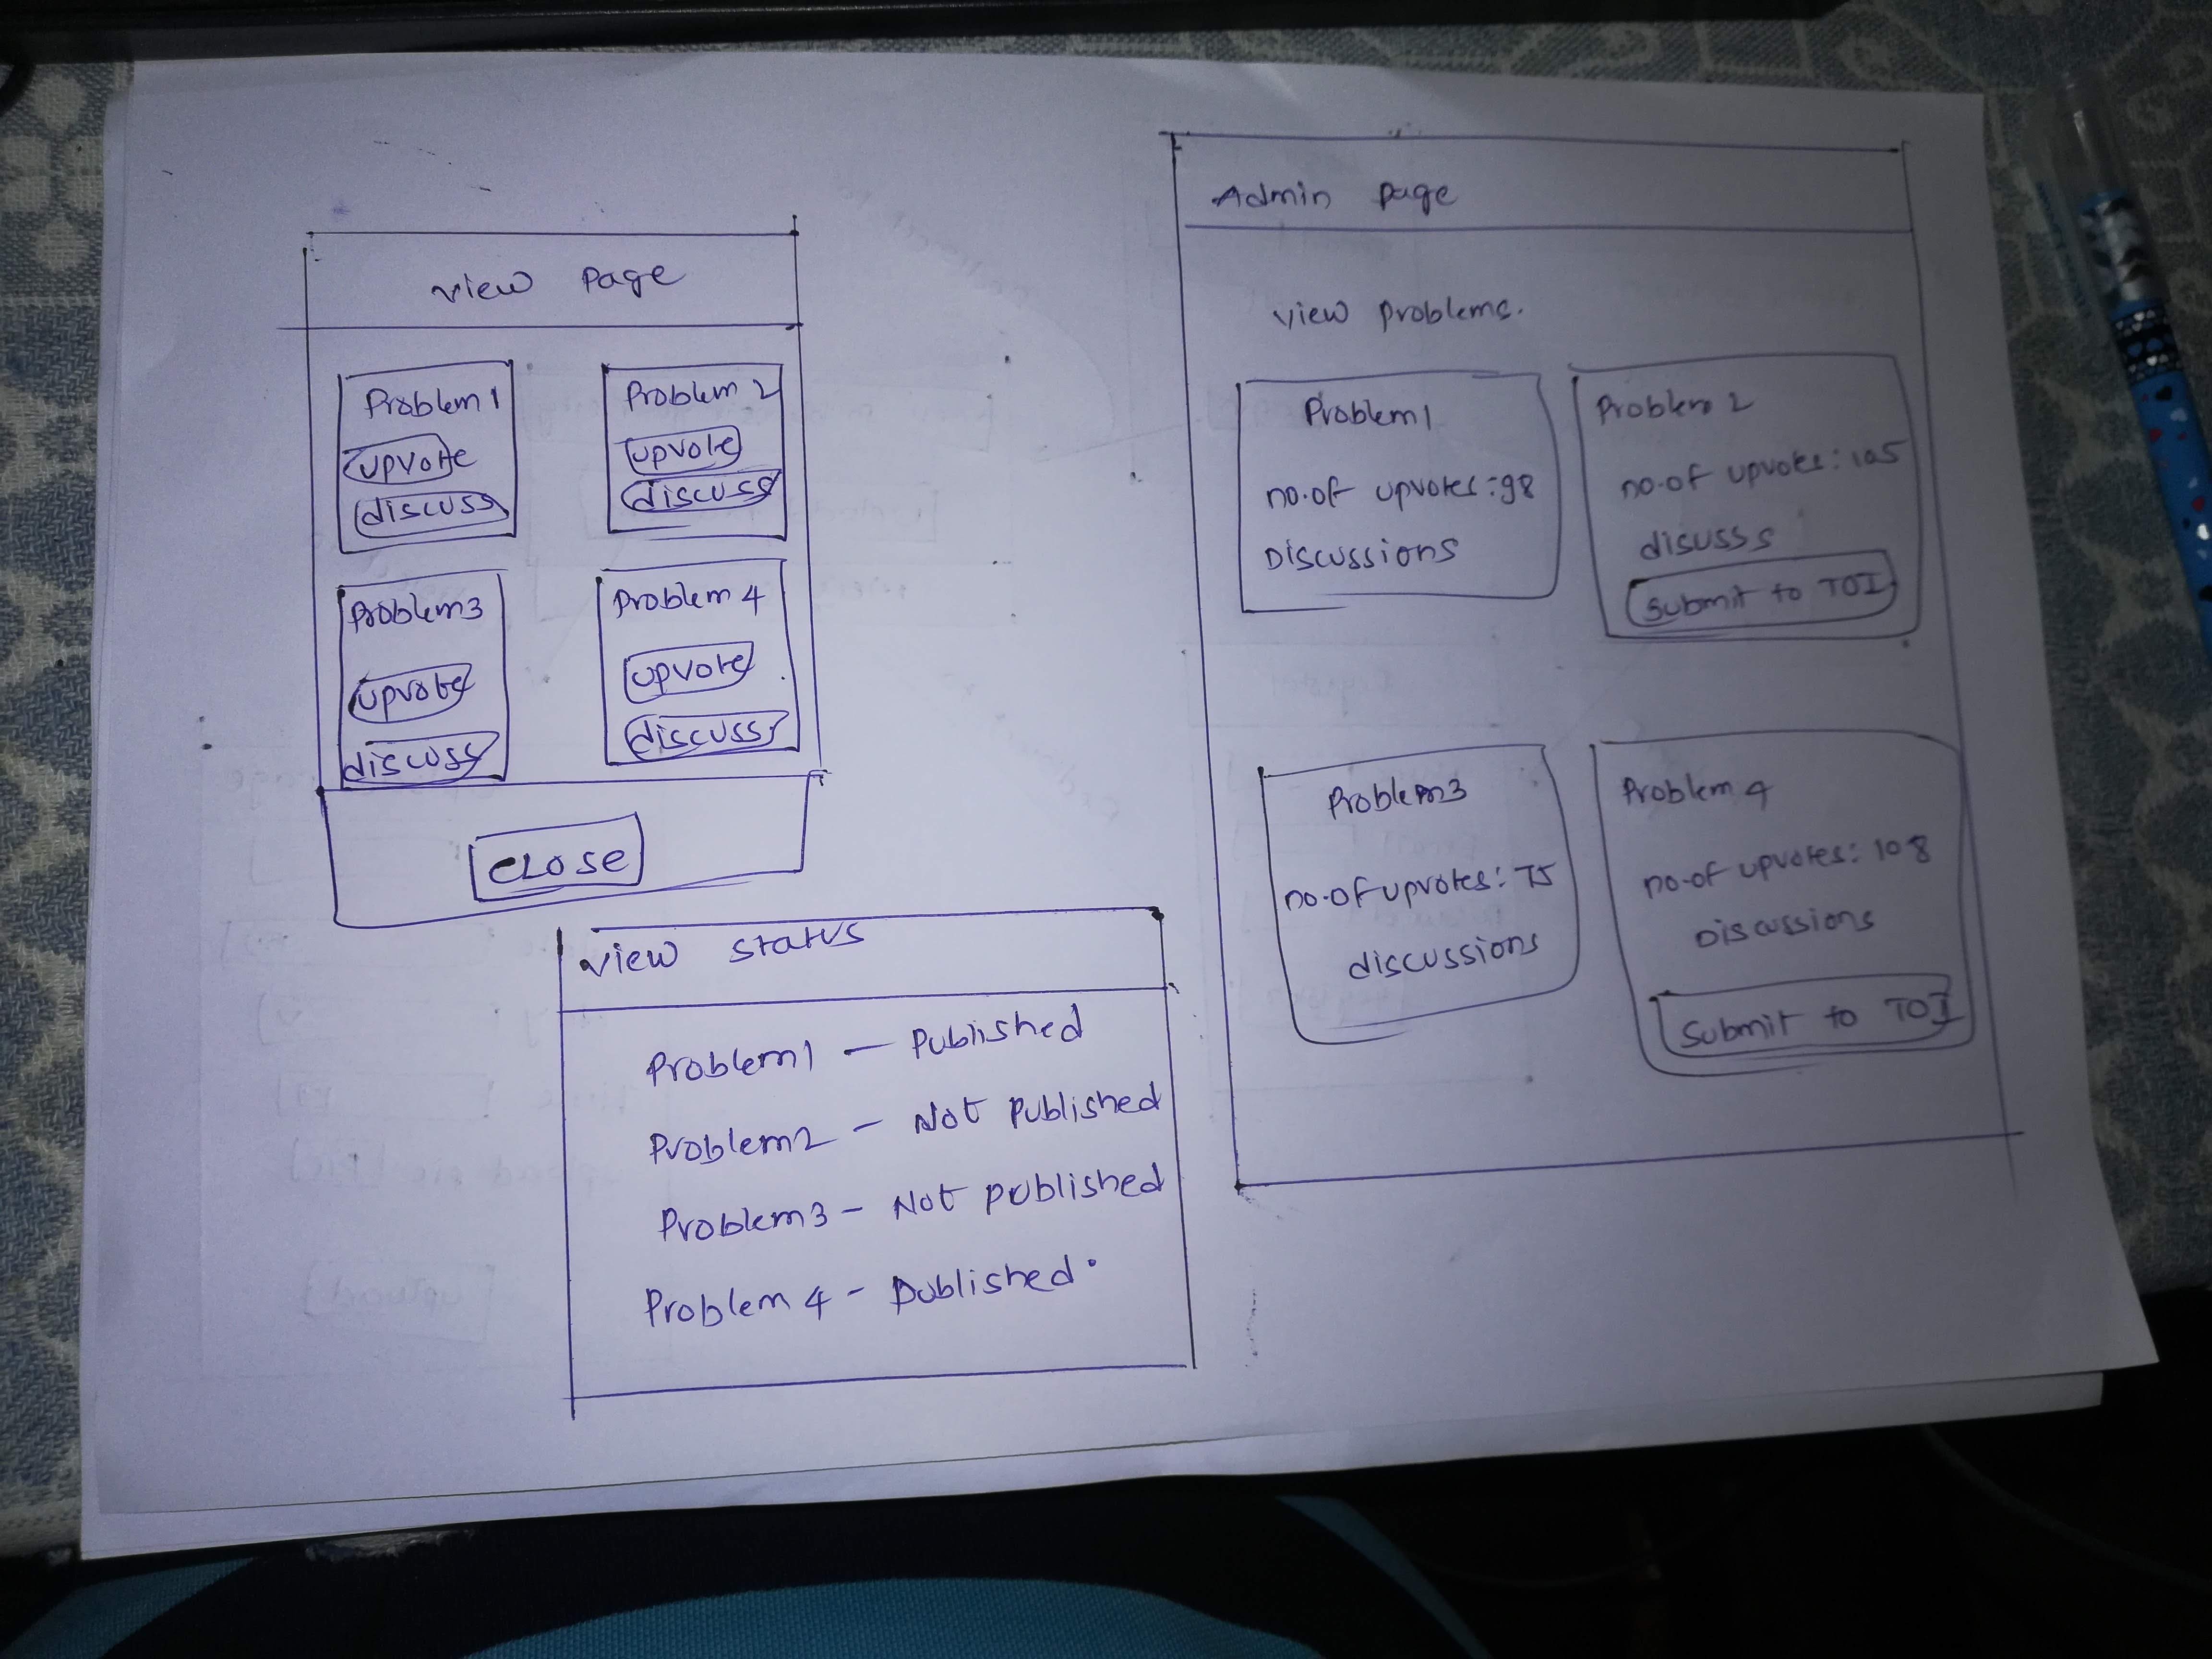 view page
Problem 1
upvote
discuss
Problem 2
upvote
discuss
Problem3
upvote
discuss
Problem 4
upvote
discuss
CLOSE
view status
Problem1 — Published
Problem2 – Not Published
Problem3 – Not published
Problem 4 – Published.
Admin page
view problems.
Problem1
no.of upvotes:98
Discussions
Problem 2
no.of upvotes:105
disusss
Submit to TOI
Problem3
no.of upvotes:75
discussions
Problem 4
no.of upvotes:108
Discussions
Submit to TOI